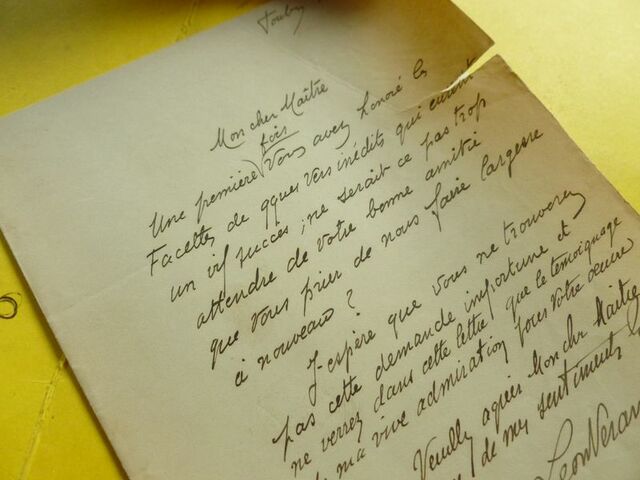 Toulon
Mon cher Maître
fois
Une première vous avez honoré les
Facettes de qques vers inédits qui eurent
un vif succès ; ne serait ce pas trop
attendre de votre bonne amitié
que vous prier de nous faire largesse
à nouveau ?
J'espère que vous ne trouverez
pas cette demande importune et
ne verrez dans cette lettre que le témoignage
de ma vive admiration pour votre œuvre
Veuillez agréer Mon cher Maître
de mes sentiments
Léon Vérane